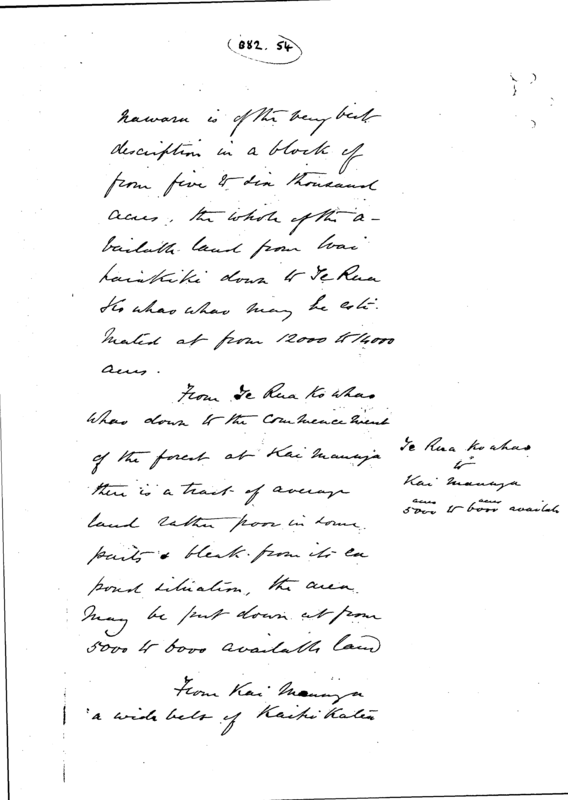 882. 54
nawaru is of the very best
description in a block of
from five to six thousand
acres. the whole of the a-
vailable land from Wai
hairikiki down to Te Rua
Ko whao whao may be esti-
mated at from 12000 to 14000
acres.
From Te Rua Ko whao
whao down to the commencement
of the forest at Kai Manuga
there is a tract of average
land rather poor in some
parts & bleak from its ex
posed situation, the area
may be put down at from
5000 to 6000 available land
From Kai Manuga
a wide belt of Kaikikatea
Te Rua Ko whao
to
Kai Manuga
acres acres
5000 to 6000 availab